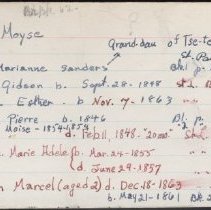 Bapt. 62.
Moyse
Grand-dau of Tse-te
St. Pa
Marianne Sanders
Bk1 p.
Gideon b. Sept. 28-1848 St. L.
Esther b. Nov. 7-1863
Pierre b. 1846 Bl. p.
Moise-1854-1854
d. Feb 11, 1848. "20 mo" St. L.
Marie Adele b. Mar. 24-1855
d. June 29-1857
Marcel (aged 2) d. Dec-18-1863
b. May 21-1861 Bk